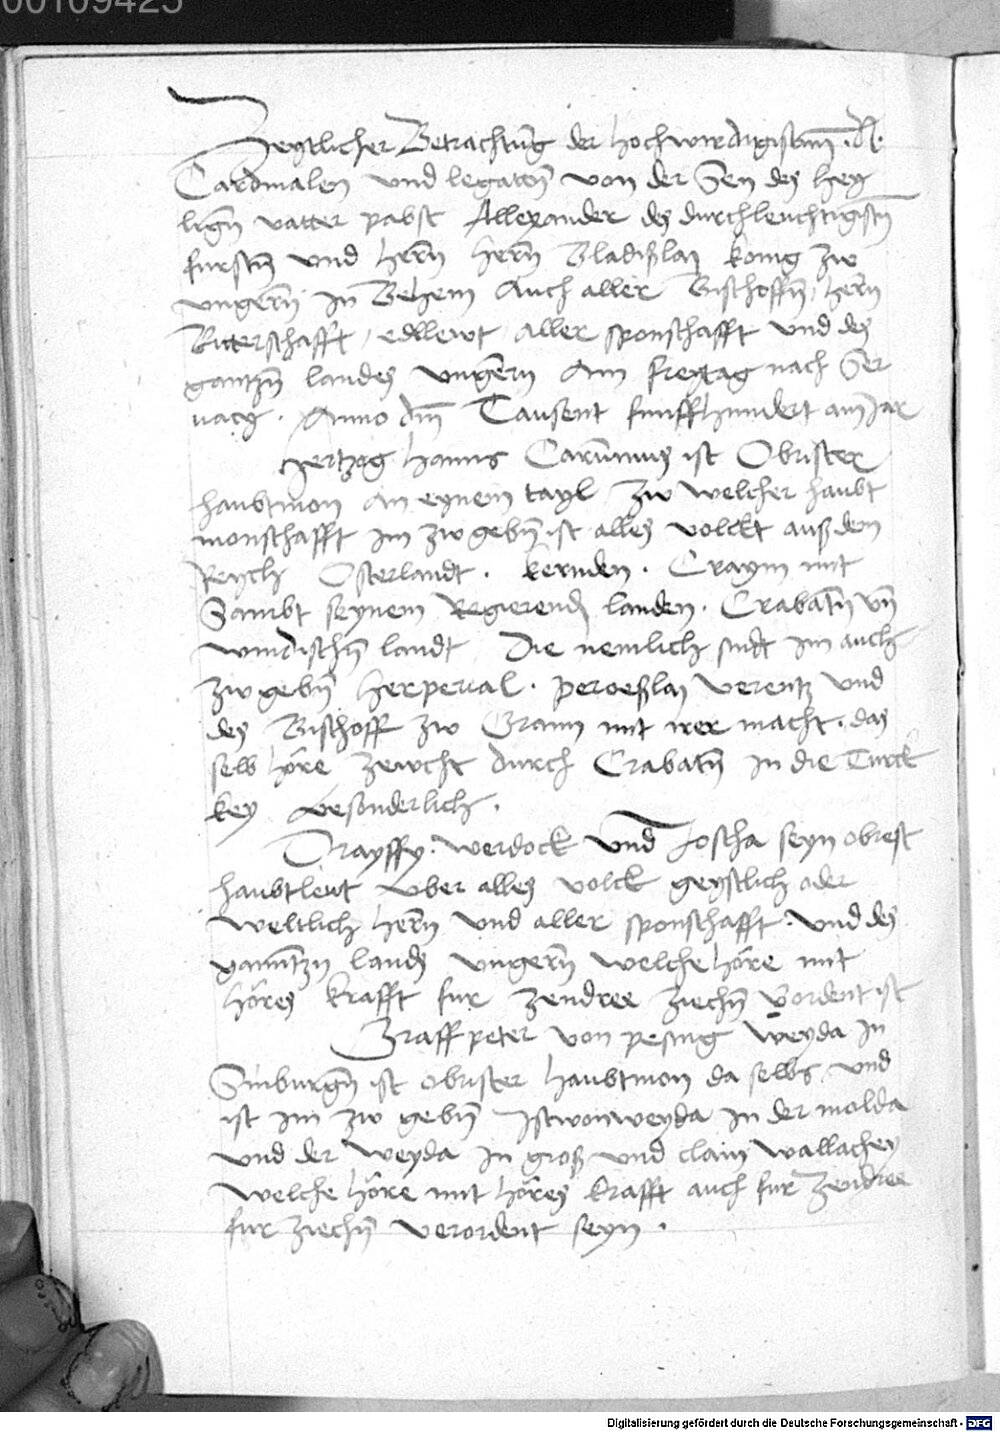 00109425
Zeytlicher Betrachtung der hochwirdigisten .N.
Cardinalen und legaten von der Sen des hey
ligen vatter pabst Allexander des durchleuchtigisten
fursten und hern hern Bladißlay konig zw
ungern In Behem Auch aller Bischoffen, hern
Ritterschafft, edllewt aller sponschafft und des
gantzen landes ungern Am freytag nach Ser
vacy . Anno dm Tausent funffhundert am Jar
Hertzog hanns Carvinus ist Obrister
haubtmon an eynem tayl zw welcher haubt
monschafft im zw geben ist alles volckt auß dem
Reych Osterlandt . kernden . Crayn mit
Sambt seynem Regierenden landen . Crabaten vn
windischen landt Die nemlich sindt im auch
zw geben herperial . peroeßlay verentz und
des Bischoff zw Gran mit irer macht . das
selb höre zewcht durch Crabaten in die Turck
key besonderlich .
Drayffy . werdock und Joscha seyn obrest
haubtleut uber alles volck geystlich oder
weltlich hern und aller sponschafft . und des
gantzen lands ungern welche höre mit
höres krafft fur zendree ziechen vordent ist
Graff peter von pesing weyda in
Sinburgen ist obrister haubtmon da selbs und
ist im zw geben Istwonweyda in der molda
und der weyda in groß und clain wallachey
welche höre mit höres krafft auch fur zendree
fur ziechen verordent seyn .
Digitalisierung gefördert durch die Deutsche Forschungsgemeinschaft - DFG